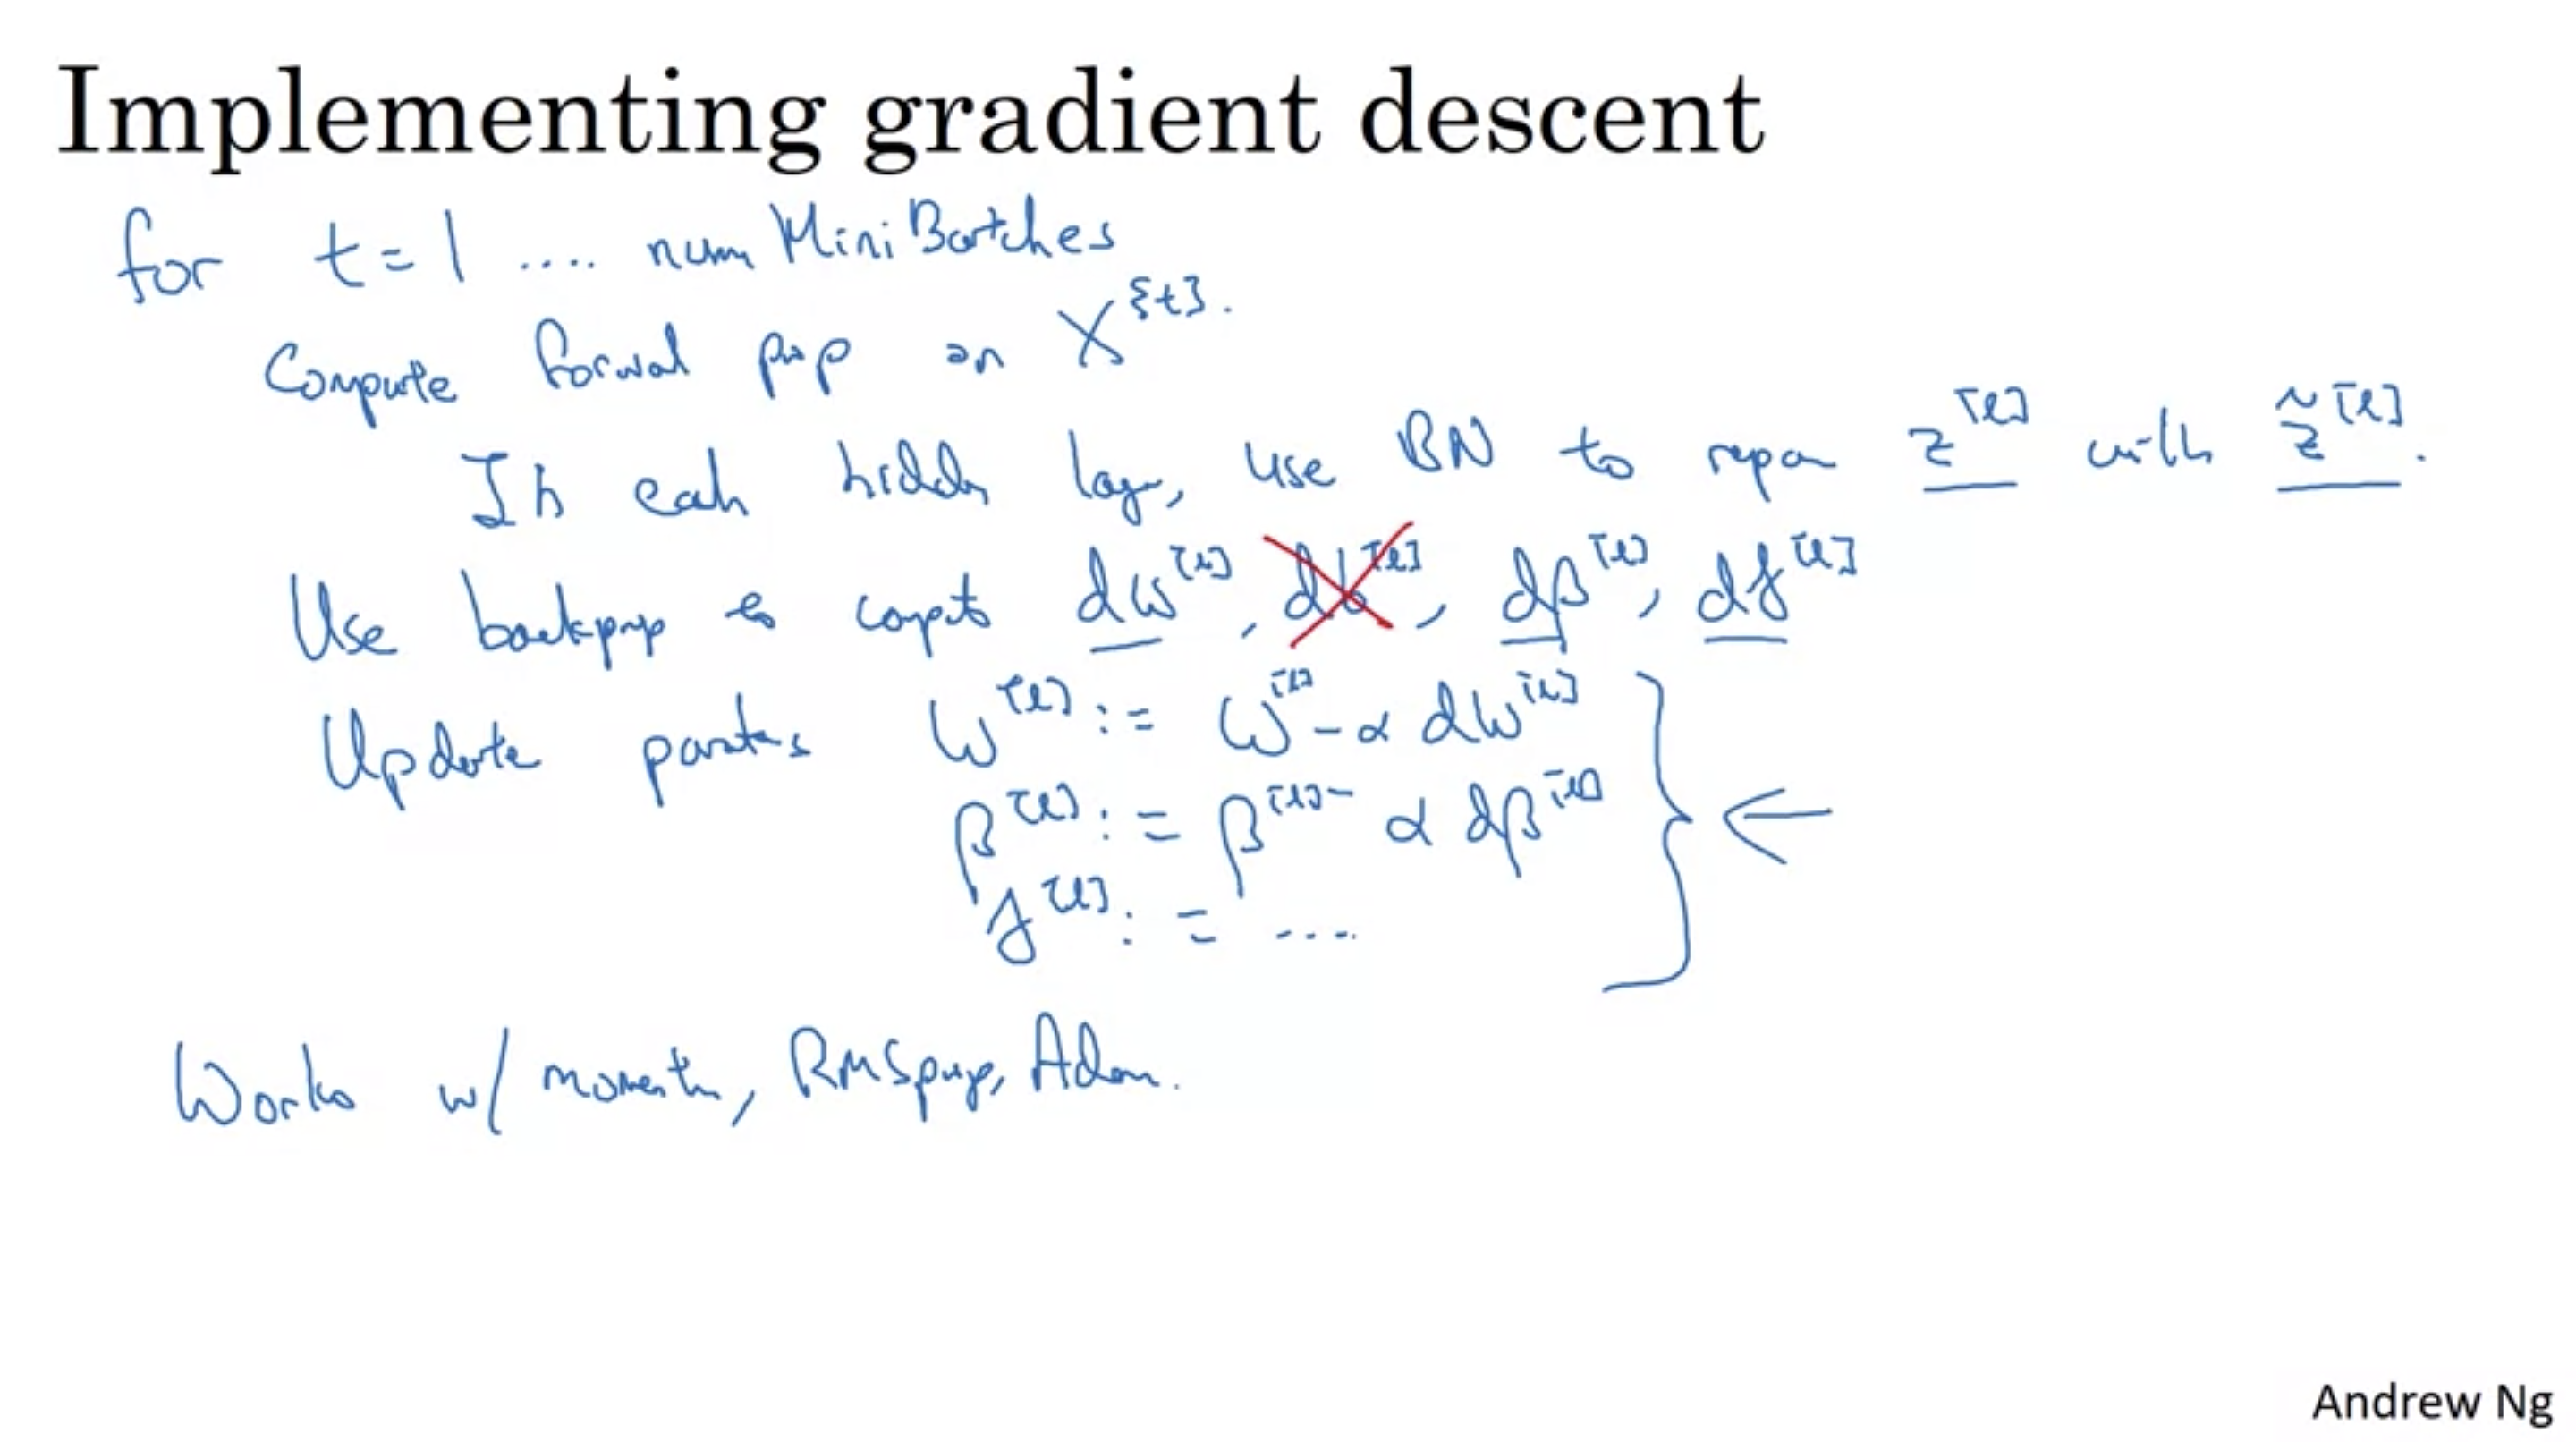 Implementing gradient descent
for t = 1 .... num MiniBatches
Compute forward prop on X^{t}.
In each hidden layer, use BN to replace z^[l] with z̃^[l].
Use backprop to compute dw^[l], db^[l], dβ^[l], dγ^[l]
Update parameters W^[l] := W^[l] - α dw^[l]
β^[l] := β^[l] - α dβ^[l]
γ^[l] := ....
Works w/ momentum, RMSprop, Adam.
Andrew Ng